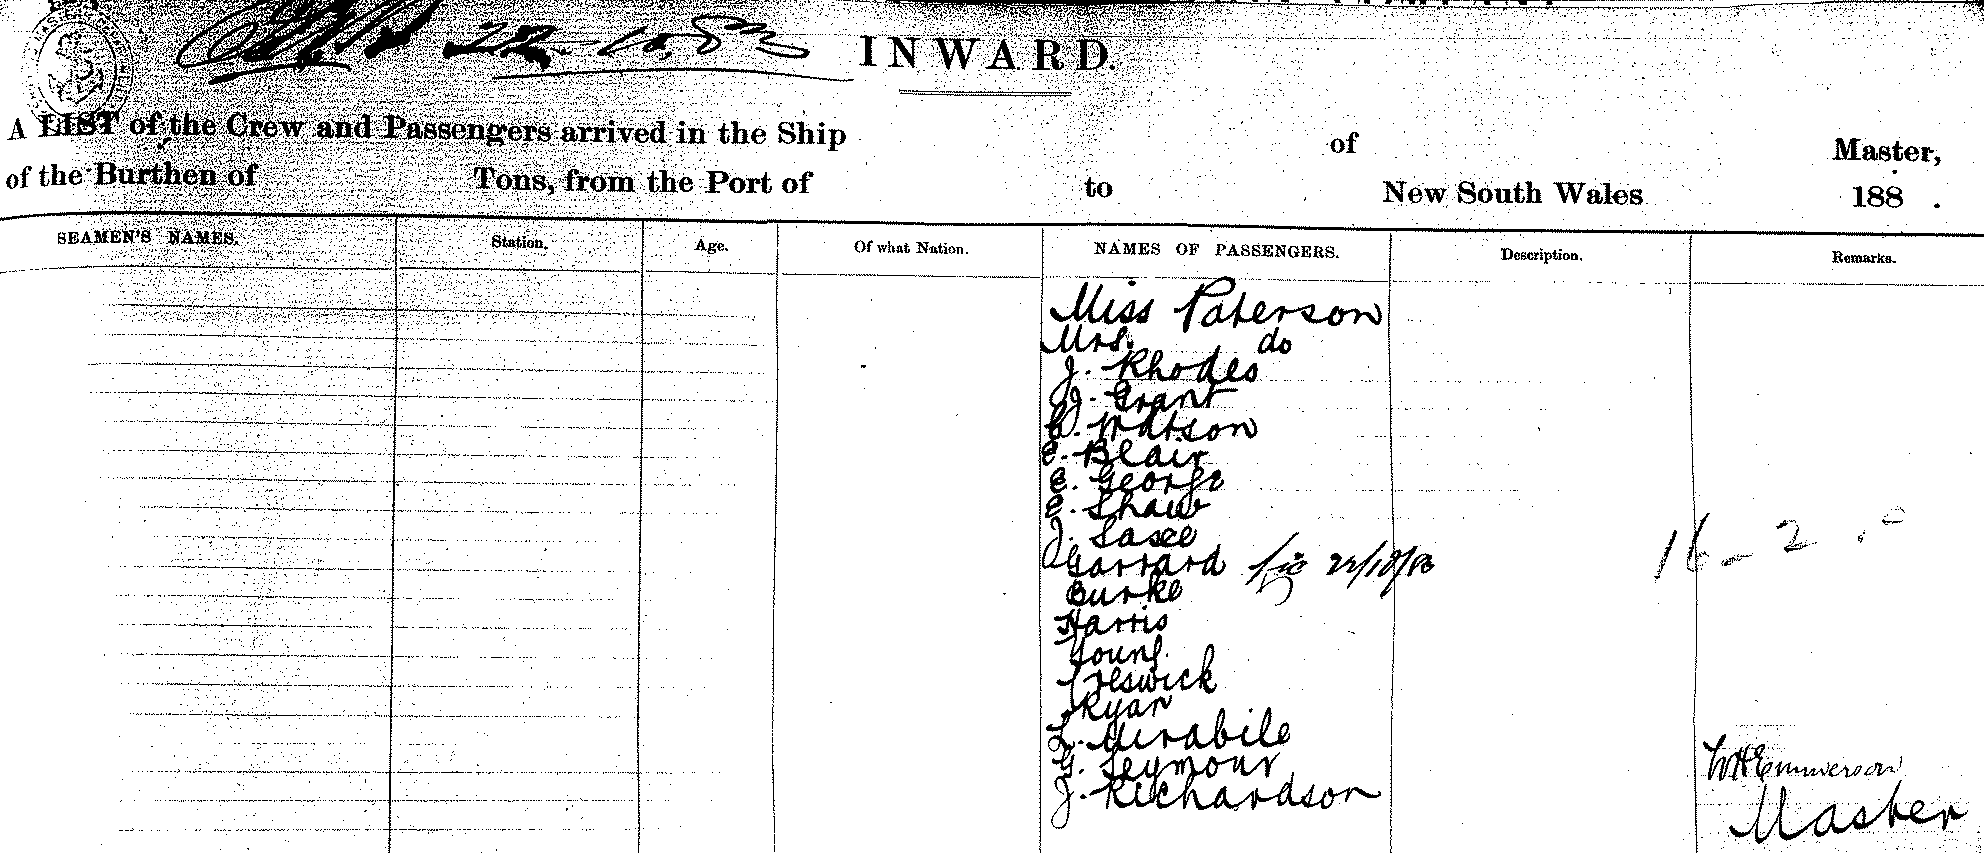 INWARD.
A LIST of the Crew and Passengers arrived in the Ship of Master,
of the Burthen of Tons, from the Port of to New South Wales 188 .
SEAMEN'S NAMES. Station. Age. Of what Nation. NAMES OF PASSENGERS. Description. Remarks.
Miss Paterson
Mrs. do
J. Rhodes
J. Grant
C. Watson
E. Blair
E. George
E. Shaw
J.
Garrard
Burke
Harris
Young
Creswick
Ryan
L. Mirabile
G. Seymour
J. Richardson
16 - 2 . 0
WHEmmerson
Master